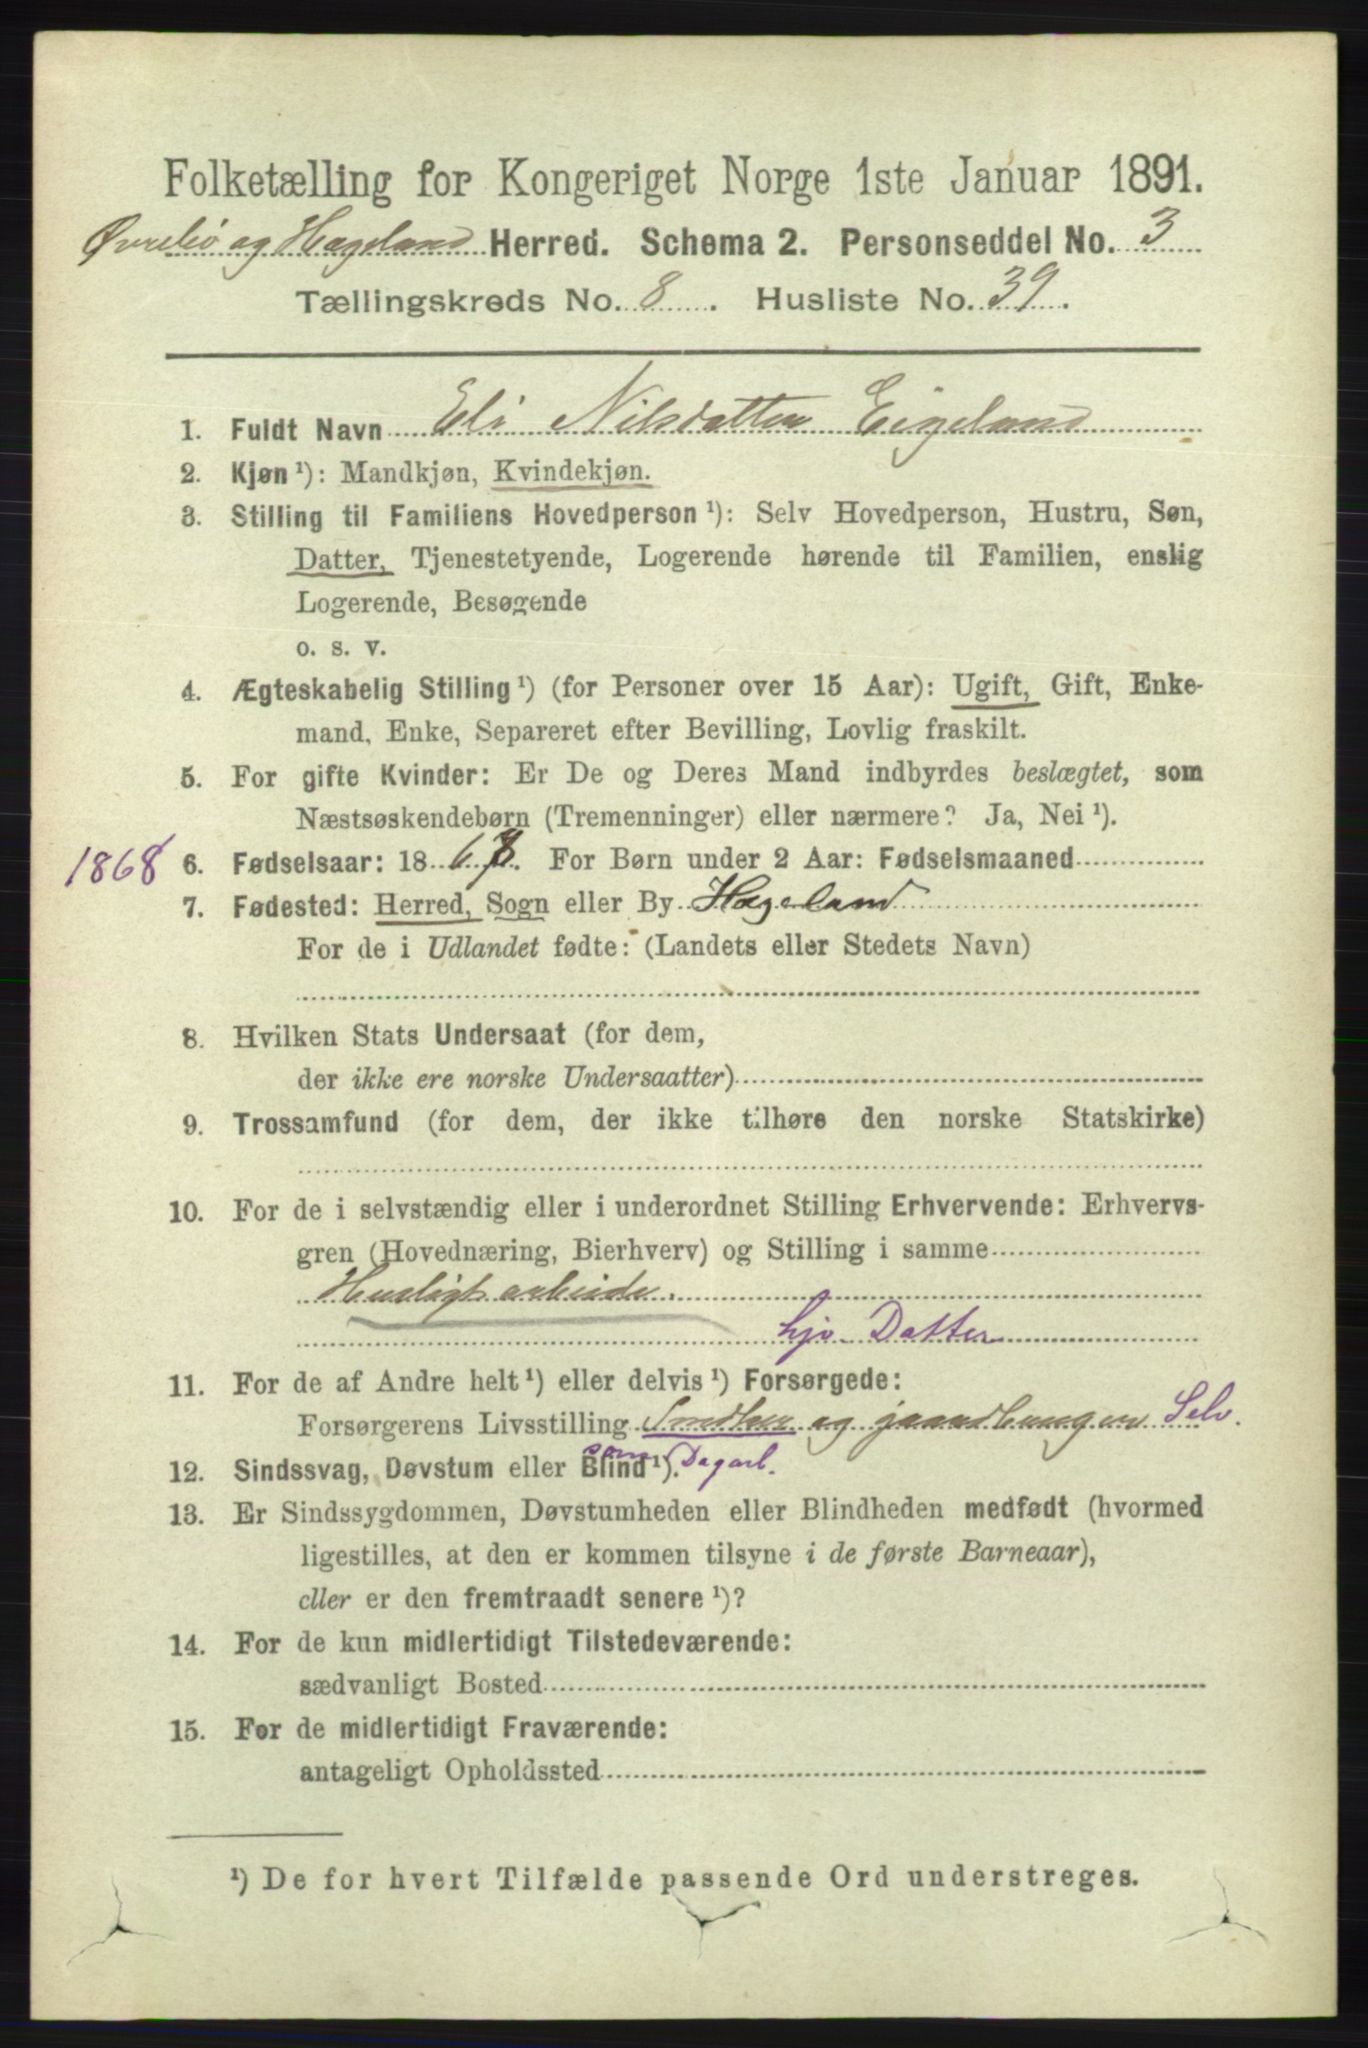 Folketælling for Kongeriget Norge 1ste Januar 1891.
Øvrebø og Hægeland Herred. Schema 2. Personseddel No. 3
Tællingskreds No. 8. Husliste No. 39.
1. Fuldt Navn Eli Nilsdatter Eigeland
2. Kjøn ¹): Mandkjøn, Kvindekjøn.
3. Stilling til Familiens Hovedperson ¹): Selv Hovedperson, Hustru, Søn,
Datter, Tjenestetyende, Logerende hørende til Familien, enslig
Logerende, Besøgende
o. s. v.
4. Ægteskabelig Stilling ¹) (for Personer over 15 Aar): Ugift, Gift, Enke-
mand, Enke, Separeret efter Bevilling, Lovlig fraskilt.
5. For gifte Kvinder: Er De og Deres Mand indbyrdes beslægtet, som
Næstsøskendebørn (Tremenninger) eller nærmere? Ja, Nei ¹).
1868 6. Fødselsaar: 1868. For Børn under 2 Aar: Fødselsmaaned
7. Fødested: Herred, Sogn eller By Hægeland
For de i Udlandet fødte: (Landets eller Stedets Navn)
8. Hvilken Stats Undersaat (for dem,
der ikke ere norske Undersaatter)
9. Trossamfund (for dem, der ikke tilhøre den norske Statskirke)
10. For de i selvstændig eller i underordnet Stilling Erhvervende: Erhvervs-
gren (Hovednæring, Bierhverv) og Stilling i samme
Husligt arbeide.
hjv. Datter
11. For de af Andre helt ¹) eller delvis ¹) Forsørgede:
Forsørgerens Livsstilling og Selv.
12. Sindssvag, Døvstum eller Blind ¹). som Dagarb.
13. Er Sindssygdommen, Døvstumheden eller Blindheden medfødt (hvormed
ligestilles, at den er kommen tilsyne i de første Barneaar),
eller er den fremtraadt senere ¹)?
14. For de kun midlertidigt Tilstedeværende:
sædvanligt Bosted
15. For de midlertidigt Fraværende:
antageligt Opholdssted
¹) De for hvert Tilfælde passende Ord understreges.